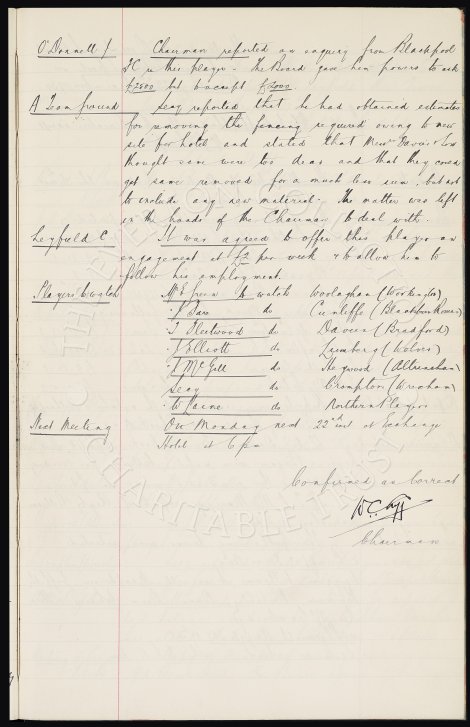 O'Donnell J. Chairman reported an enquiry from Blackpool
FC re this player - The Board gave him powers to ask
£2500 but to accept £2000
A Team ground Secy reported that he had obtained estimates
for removing the fencing required owing to new
site for hotel and stated that Messrs Davies & Co
thought same were too dear and that they could
get same removed for a much less sum, but not
to include any new material. The matter was left
in the hands of the Chairman to deal with.
Leyfield C. It was agreed to offer this player an
engagement at £2 per week & to allow him to
follow his employment.
Players to watch Mr E Green to watch Woolaghan (Workington)
" do Cunliffe (Blackburn Rovers)
" T Fleetwood do Davies (Bradford)
" J Elliott do (Wolves)
" do Heywood (Altrincham)
Secy do Crompton (Wrexham)
" do Northern Players
Next Meeting On Monday next 22nd inst at Exchange
Hotel at 6 pm
Confirmed as Correct
W.C. Cuff
Chairman
CHARITABLE TRUST